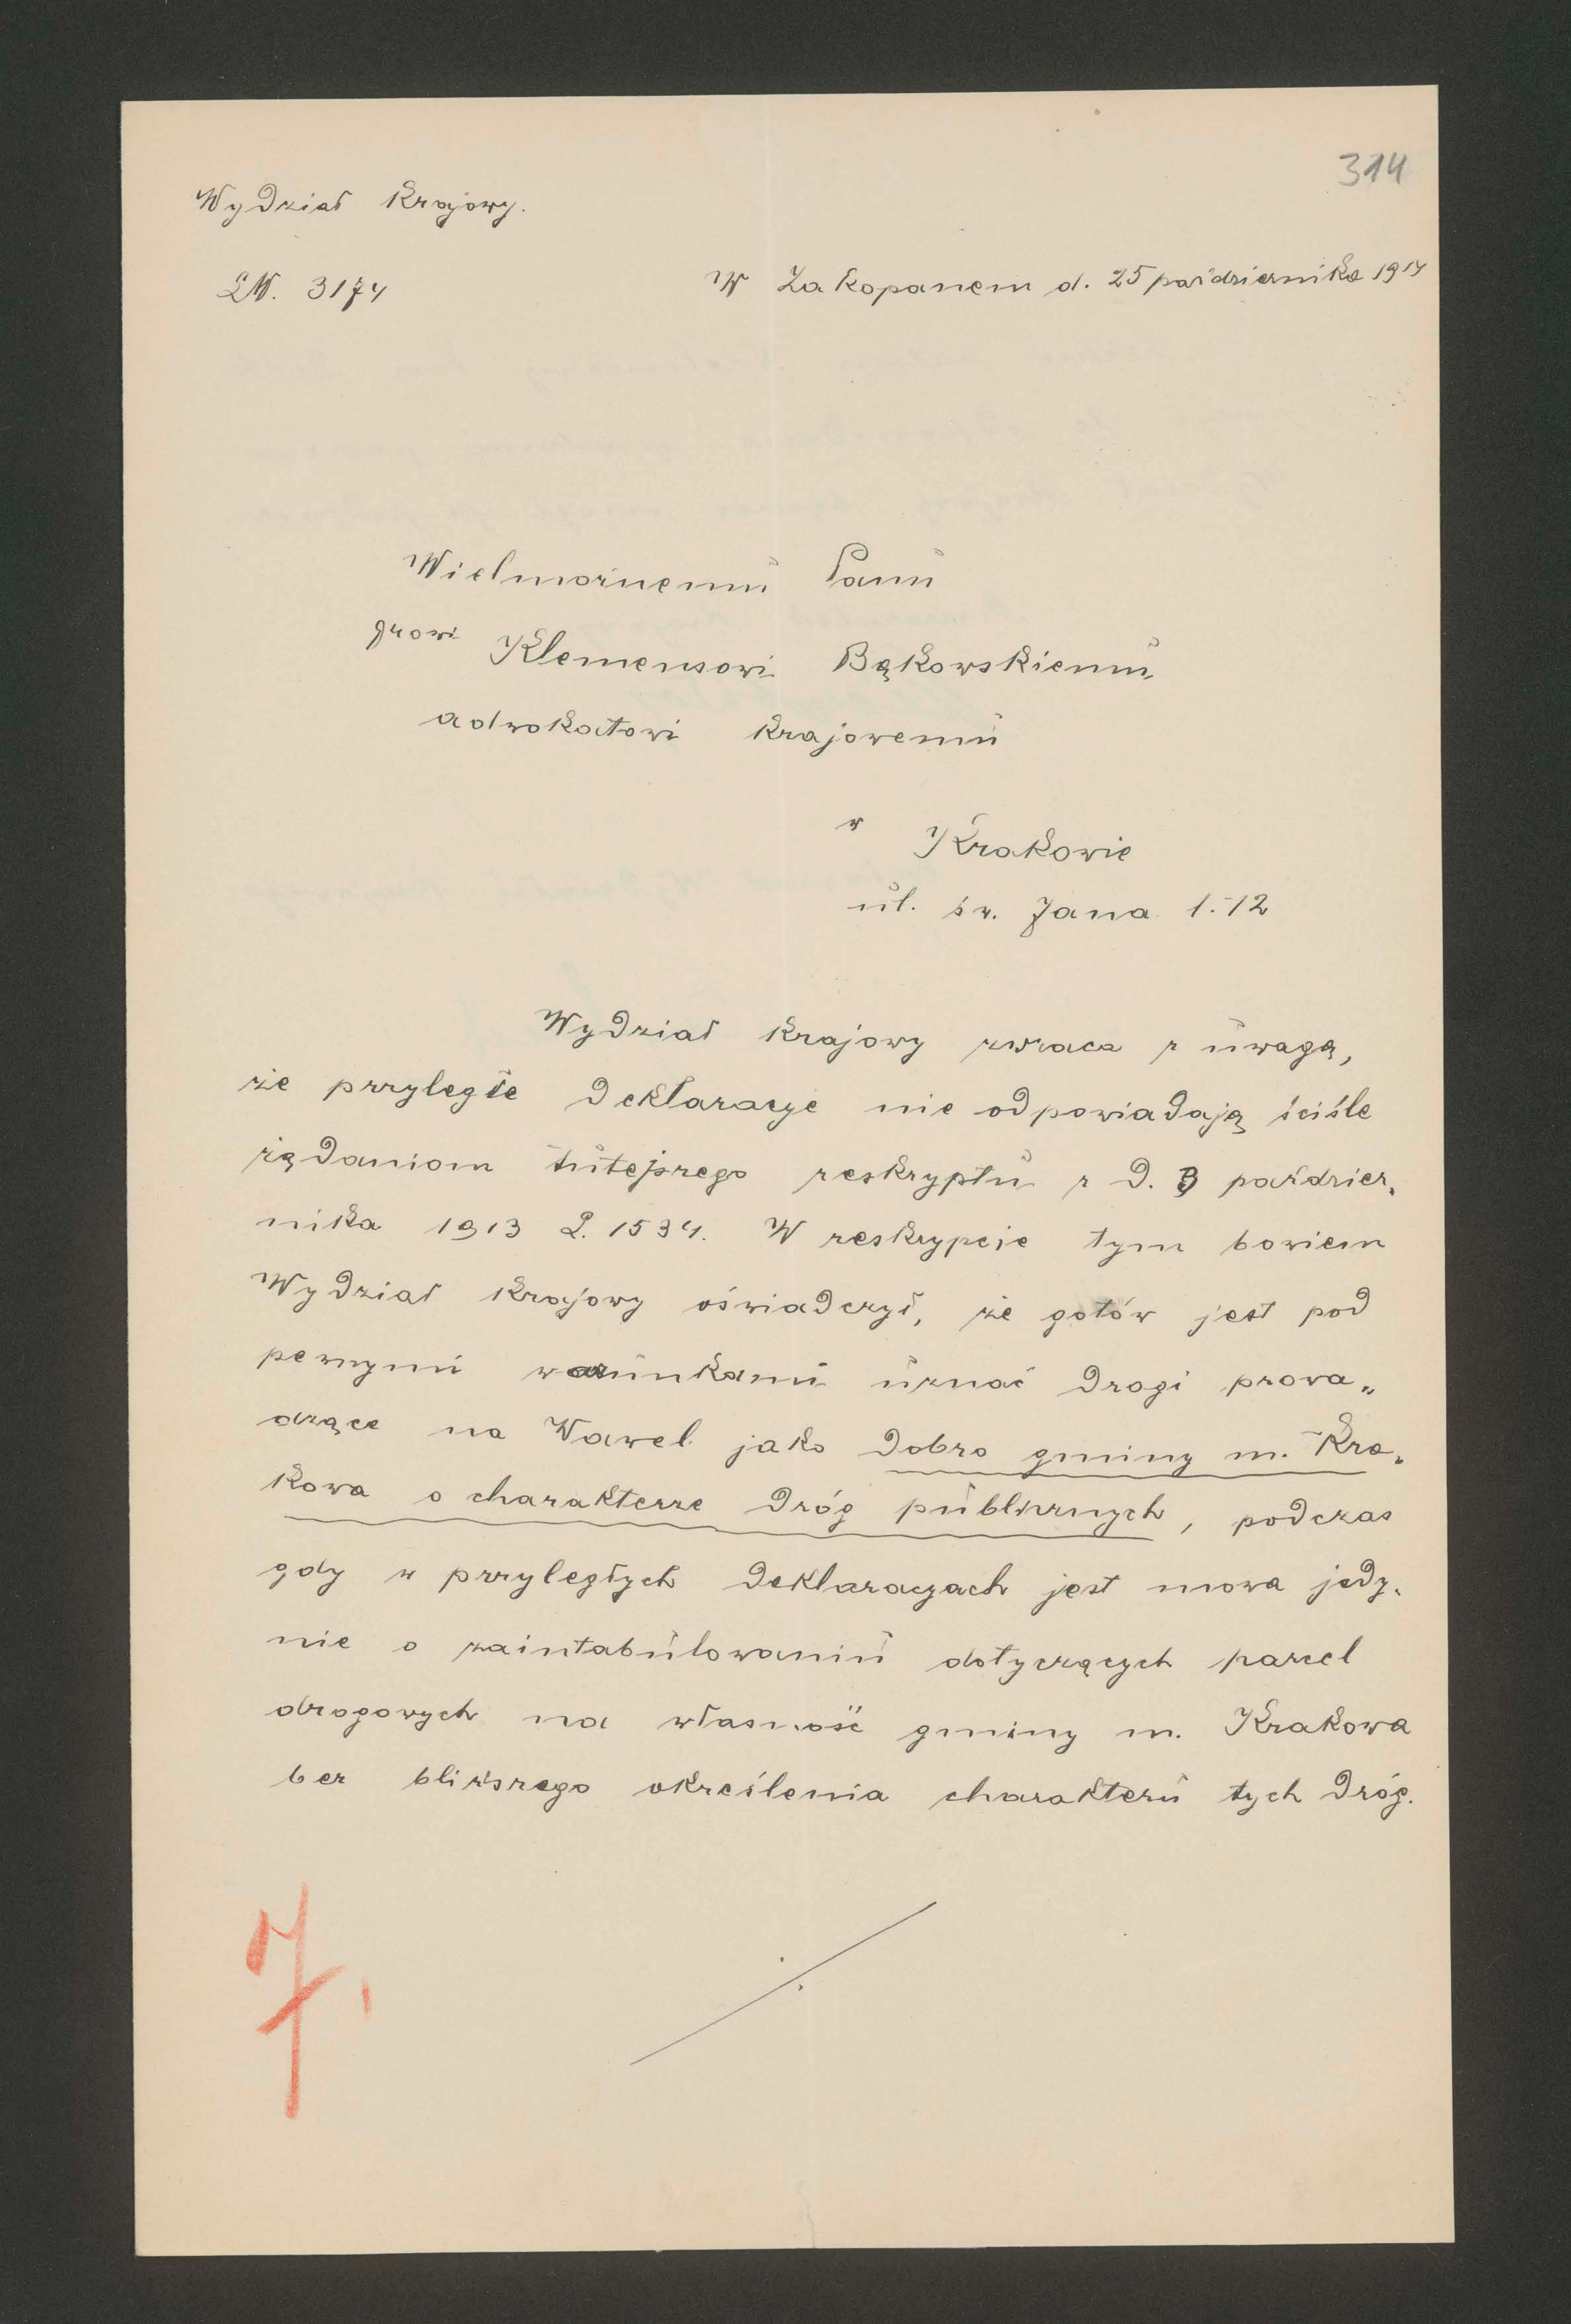 314
Wydział krajowy.
LW. 3174
W Zakopanem d. 25 października 1914
Wielmożnemu Panu
Drowi Klemensowi Bąkowskiemu
adwokatowi krajowemu
w Krakowie
ul. św. Jana l. 12
Wydział krajowy zwraca z uwagą,
że przyległe deklaracye nie odpowiadają ściśle
żądaniom tutejszego reskryptu z d. 3 paździer„
nika 1913 L. 1534. W reskrypcie tym bowiem
Wydział krajowy oświadczył, że gotów jest pod
pewnymi warunkami uznać drogi prowa„
dzące na Wawel jako dobro gminy m. Kra„
kowa o charakterze dróg publicznych, podczas
gdy w przyległych deklaracyach jest mowa jedy„
nie o zaintabulowaniu dotyczących parcel
drogowych na własność gminy m. Krakowa
bez bliższego określenia charakteru tych dróg.
7.
./.